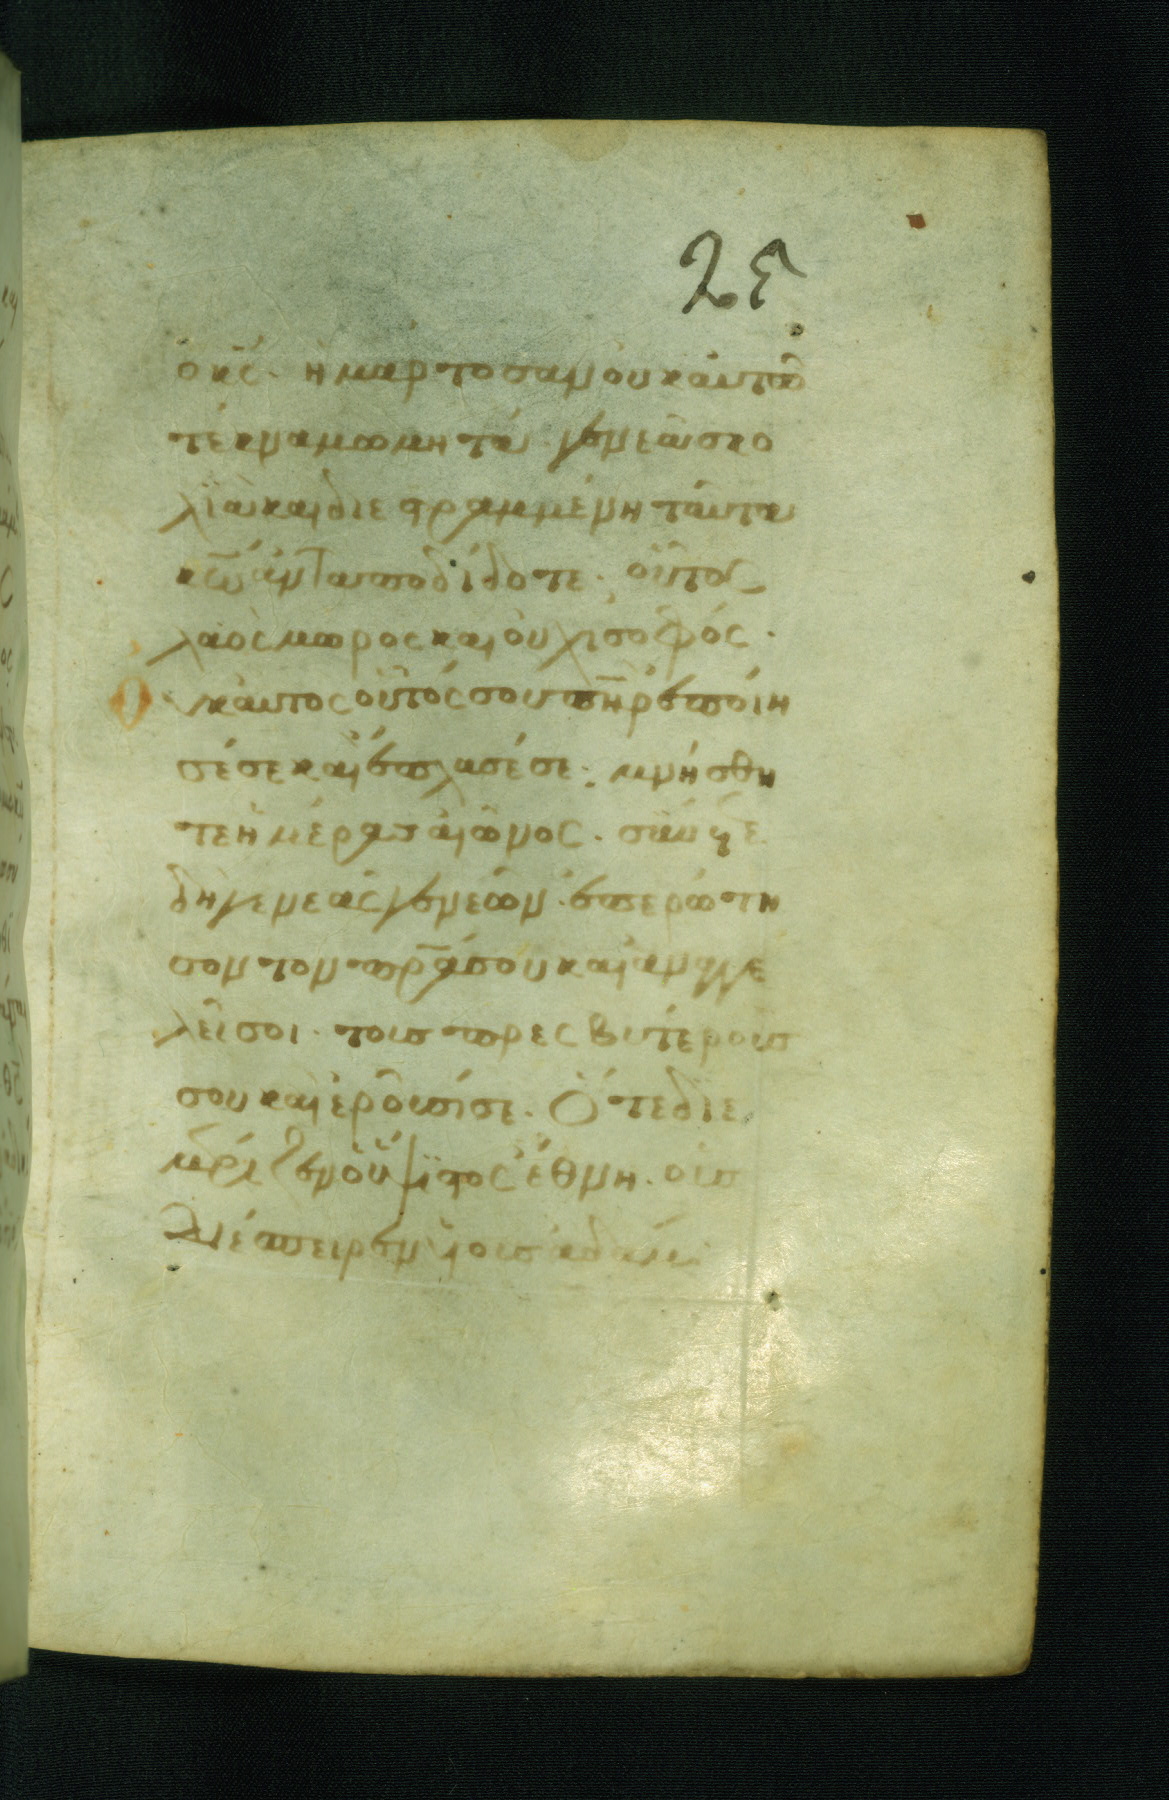 25
ὁ κ̅ς̅· ἡμάρτοσαν οὐκ αὐτῶ
τέκνα μωμητά· γενεὰ σκο
λιὰ καὶ διεστραμμένη ταύτα
κ̅ω̅ ἀνταποδίδοτε· οὕτος
λαὸς μωρος καὶ οὐχὶ σοφός·
Οὐκ αυτος οὕτός σου π̅η̅ρ ἐποίη
σέ σε καὶ ἔπλασέ σε· μνήσθη
τε ἡμέρας αἰῶνος· σύν
δὴ γενεὰς γενεῶν· ἐπερώτη
σον τον π̅ρ̅α σου καὶ ἀναγγε
λεῖ σοι· τους πρεσβυτέρους
σου καὶ ἐροῦσί σε· Ὅτε διε
μέριζεν ὁ ὕψιστος ἔθνη· οὑς
διέσπειρεν υἱους ἀδάμ·